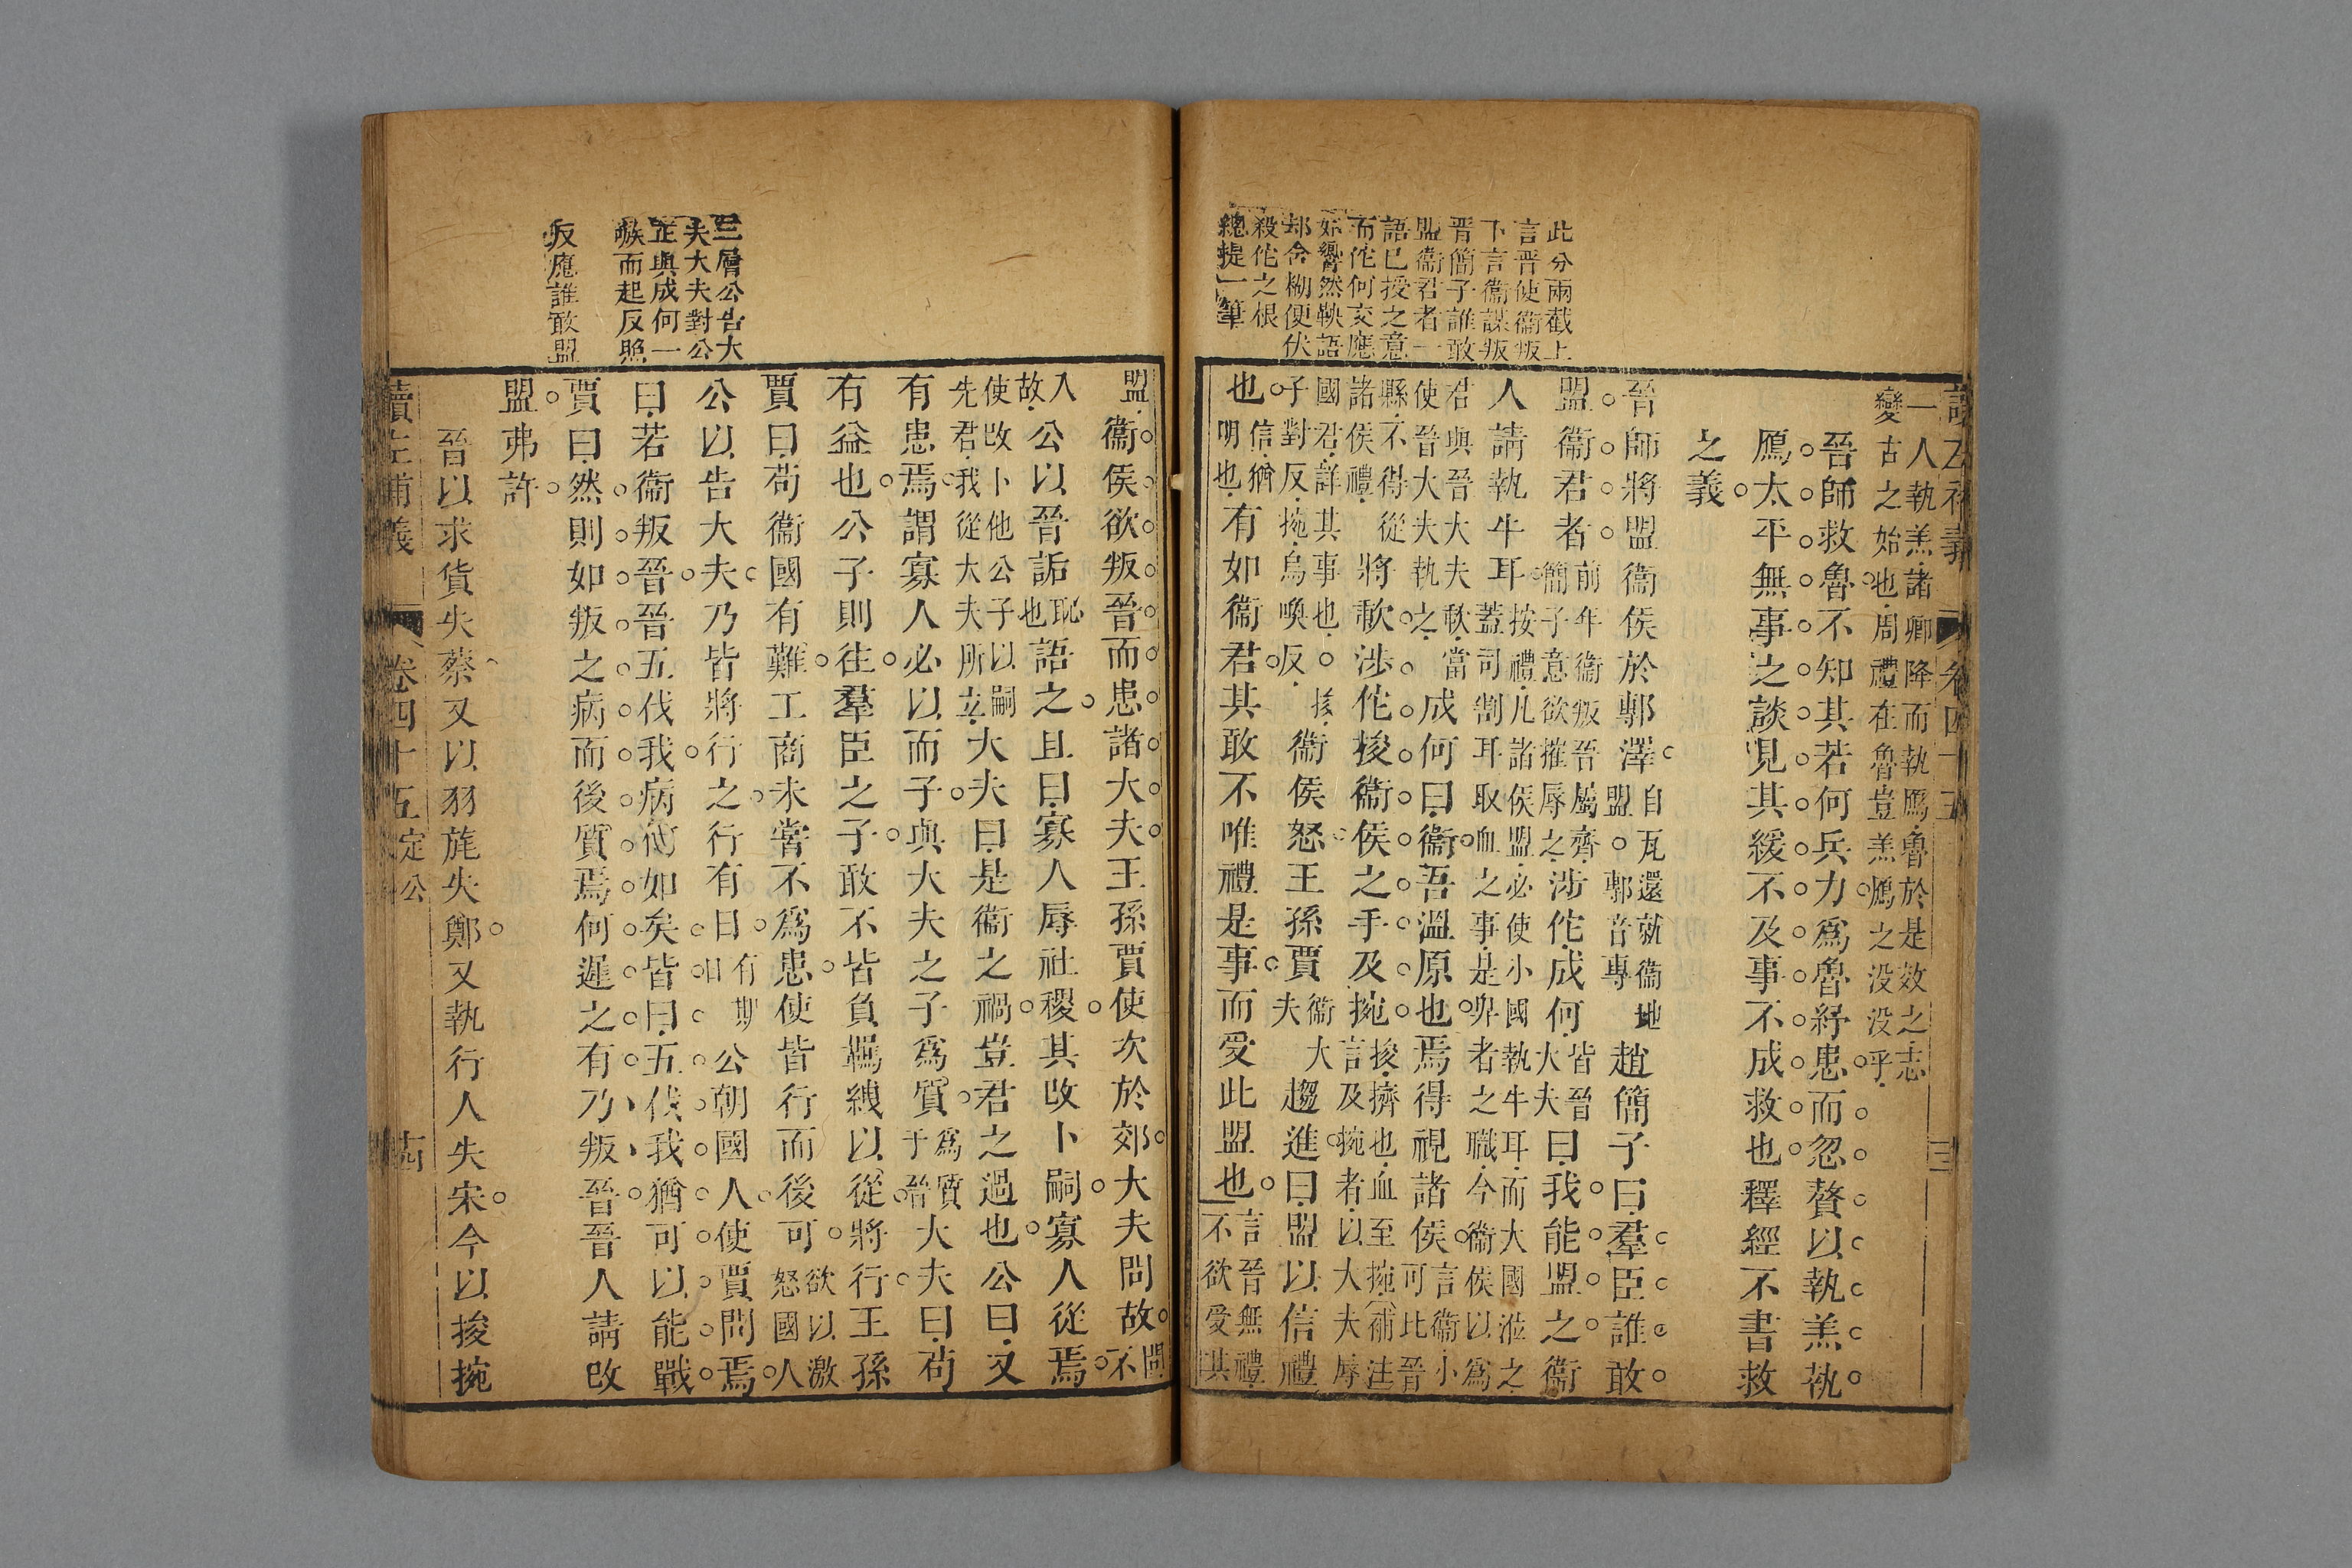 此分兩截上
言晋使衞叛
下言衞謀叛
晋簡子誰敢
盟衞君者一
語已授之意
而佗何交應
如響然鞅語
却含糊便伏
殺佗之根
總提一筆
一人執羔諸卿降而執鴈魯於是效之志
變古之始也周禮在魯豈羔鴈之没没乎
晉師救魯不知其若何兵力爲魯紓患而忽贅以執羔執
鴈太平無事之談見其緩不及事不成救也釋經不書救
之義
晉師將盟衞侯於鄟澤自瓦還就衞地盟○鄟音專趙簡子曰羣臣誰敢
盟衞君者前年衞叛晉屬齊簡子意欲摧辱之涉佗成何皆晉大夫曰我能盟之衞
人請執牛耳按禮凡諸侯盟必使小國執牛耳而大國涖之蓋司割耳取血之事是卑者之職今衞侯以爲
君與晉大夫歃當使晉大夫執之成何曰衞吾溫原也焉得視諸侯言衞小可比晉
縣不得從諸侯禮將歃涉佗捘衞侯之手及捥捘擠也血至捥補注言及捥者以大夫辱
國君詳其事也○捘子對反捥烏喚反衞侯怒王孫賈衞大夫趨進曰盟以信禮
也信猶明也有如衞君其敢不唯禮是事而受此盟也言晉無禮不欲受其
三層公告大
夫大夫對公
正與成何一
嗾而起反照
反應誰敢盟
盟衞侯欲叛晉而患諸大夫王孫賈使次於郊大夫問故問不
入故公以晉詬恥也語之且曰寡人辱社稷其改卜嗣寡人從焉
使改卜他公子以嗣先君我從大夫所立大夫曰是衞之禍豈君之過也公曰又
有患焉謂寡人必以而子與大夫之子爲質爲質于晉大夫曰苟
有益也公子則往羣臣之子敢不皆負羈絏以從將行王孫
賈曰苟衞國有難工商未嘗不爲患使皆行而後可欲以激怒國人
公以告大夫乃皆將行之行有日有期日公朝國人使賈問焉
曰若衞叛晉晉五伐我病何如矣皆曰五伐我猶可以能戰
賈曰然則如叛之病而後質焉何遲之有乃叛晉晉人請改
盟弗許
晉以求貨失蔡又以羽旄失鄭又執行人失宋今以捘捥
讀左補義 卷四十五 定公